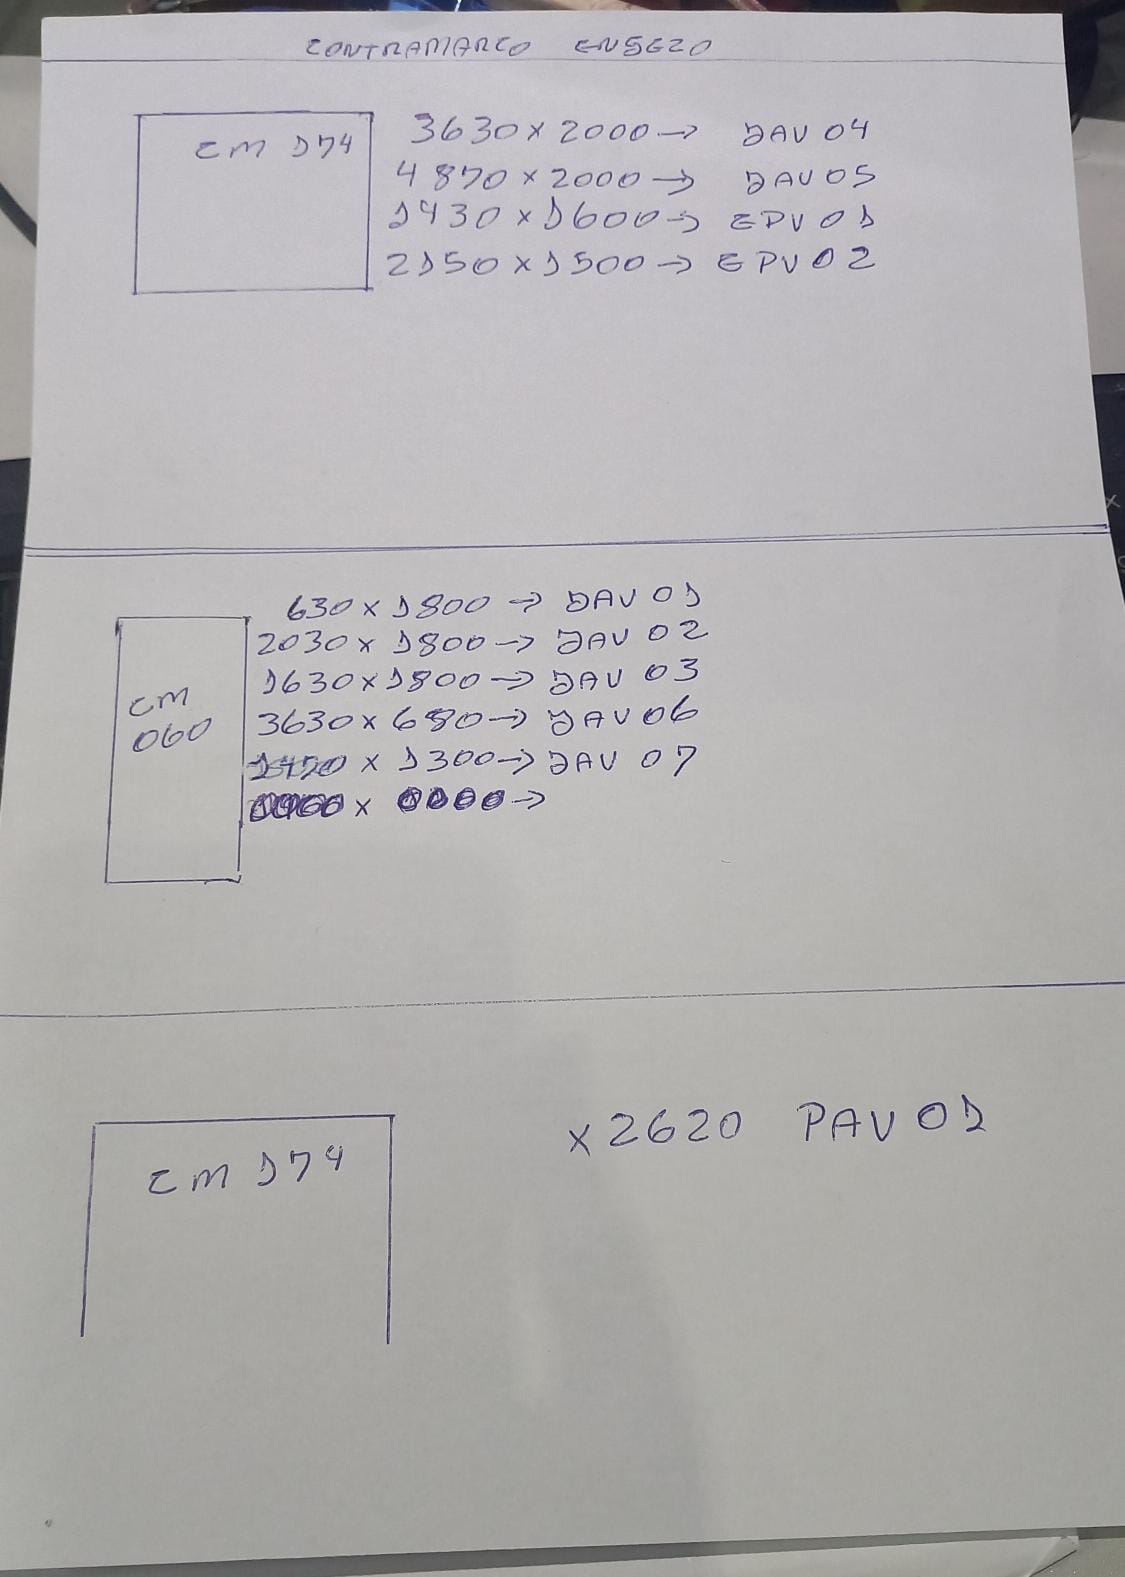 CONTRAMARCO ENSEZO
CM 174
3630 x 2000 → JAV 04
4870 x 2000 → JAV 05
1430 x 1600 → EPV 01
2150 x 1500 → EPV 02
CM
060
630 x 1800 → JAV 01
2030 x 1800 → JAV 02
1630 x 1800 → JAV 03
3630 x 680 → JAV 06
x 1300 → JAV 07
x →
CM 174
x 2620 PAV 01